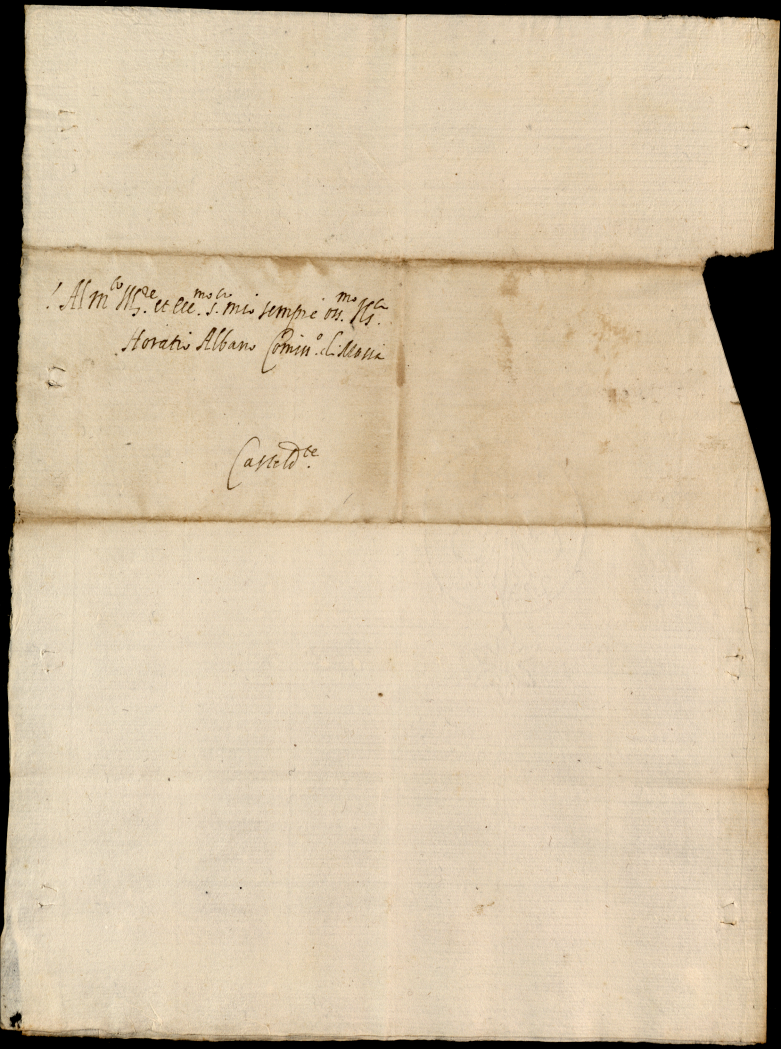 Al m.to Ill.re et ecc.mo s.r mio sempre oss.mo Il s.r
Horatio Albano Comiss.o di Massa
Casteld.te